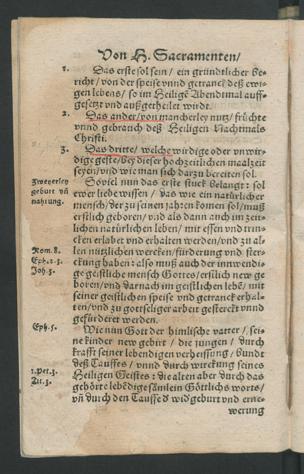 Von H. Sacramenten/
1. Das erste sol sein/ ein gründtlicher Be-
richt/ von der speise vnnd getranck deß ewi-
gen lebens/ so im Heiligē Abendtmal auff-
gesetzt vnd außgetheilet wirdt.
2. Das ander/ von mancherley nutz/ früchte
vnnd gebrauch deß Heiligen Nachtmals
Christi.
3. Das dritte/ welche wirdige oder vnwir-
dige geste/ bey dieser hochzeitlichen maalzeit
seyen/ vnd wie man sich darzu bereiten sol.
Zweyerley
geburt vñ
nahrung.
Soviel nun das erste stuck belangt: sol
ewer liebe wissen/ das wie ein natürlicher
mensch/ der zu seinen jahren komen sol/ muß
erstlich geboren/ vnd als dann auch im zeit-
lichen natürlichen leben/ mit essen vnd trin-
cken erlabet vnd erhalten werden/ vnd zu al-
len nützlichen wercken/ fürderung vnd ster-
Rom. 8.
Eph. 2. 3.
Joh. 3.
ckung haben: also muß auch der innwendi-
ge geistliche mensch Gottes/ erstlich new ge
boren/ vnd darnach im geistlichen lebē/ mit
seiner geistlichen speise vnd getranck erhal-
ten/ vnd zu gottseliger arbeit gesterckt vnd
gefürderet werden.
Eph. 5.
Wie nun Gott der himlische vatter/ sei-
ne kinder new gebirt/ die jungen/ durch
krafft seiner lebendigen verheissung/ vnndt
deß Tauffes/ vnnd durch wirckung seines
1. Pet. 3.
Tit. 3.
Heiligen Geistes: die alten aber durch das
gehörte lebēdige sämlein Göttlichs worts/
vñ durch den Tauff
geburt vnd erne-
werung